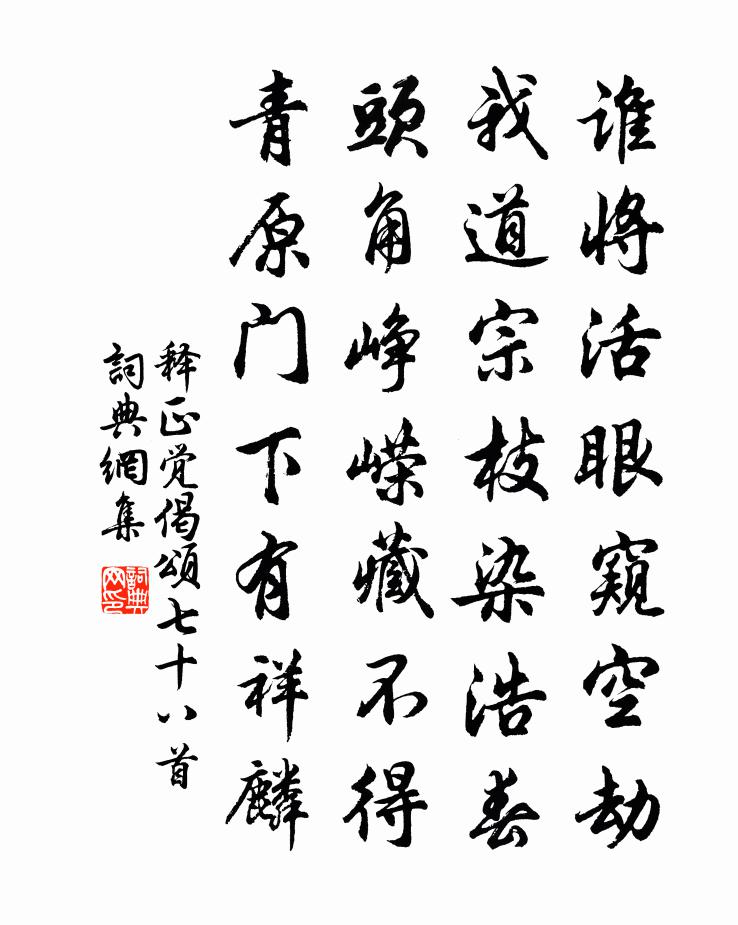 谁将活眼窥空劫
我道宗枝染浩春
頭角峥嵘藏不得
青原门下有祥麟
释正觉偈颂七十八首
詞典網集
詞典网印